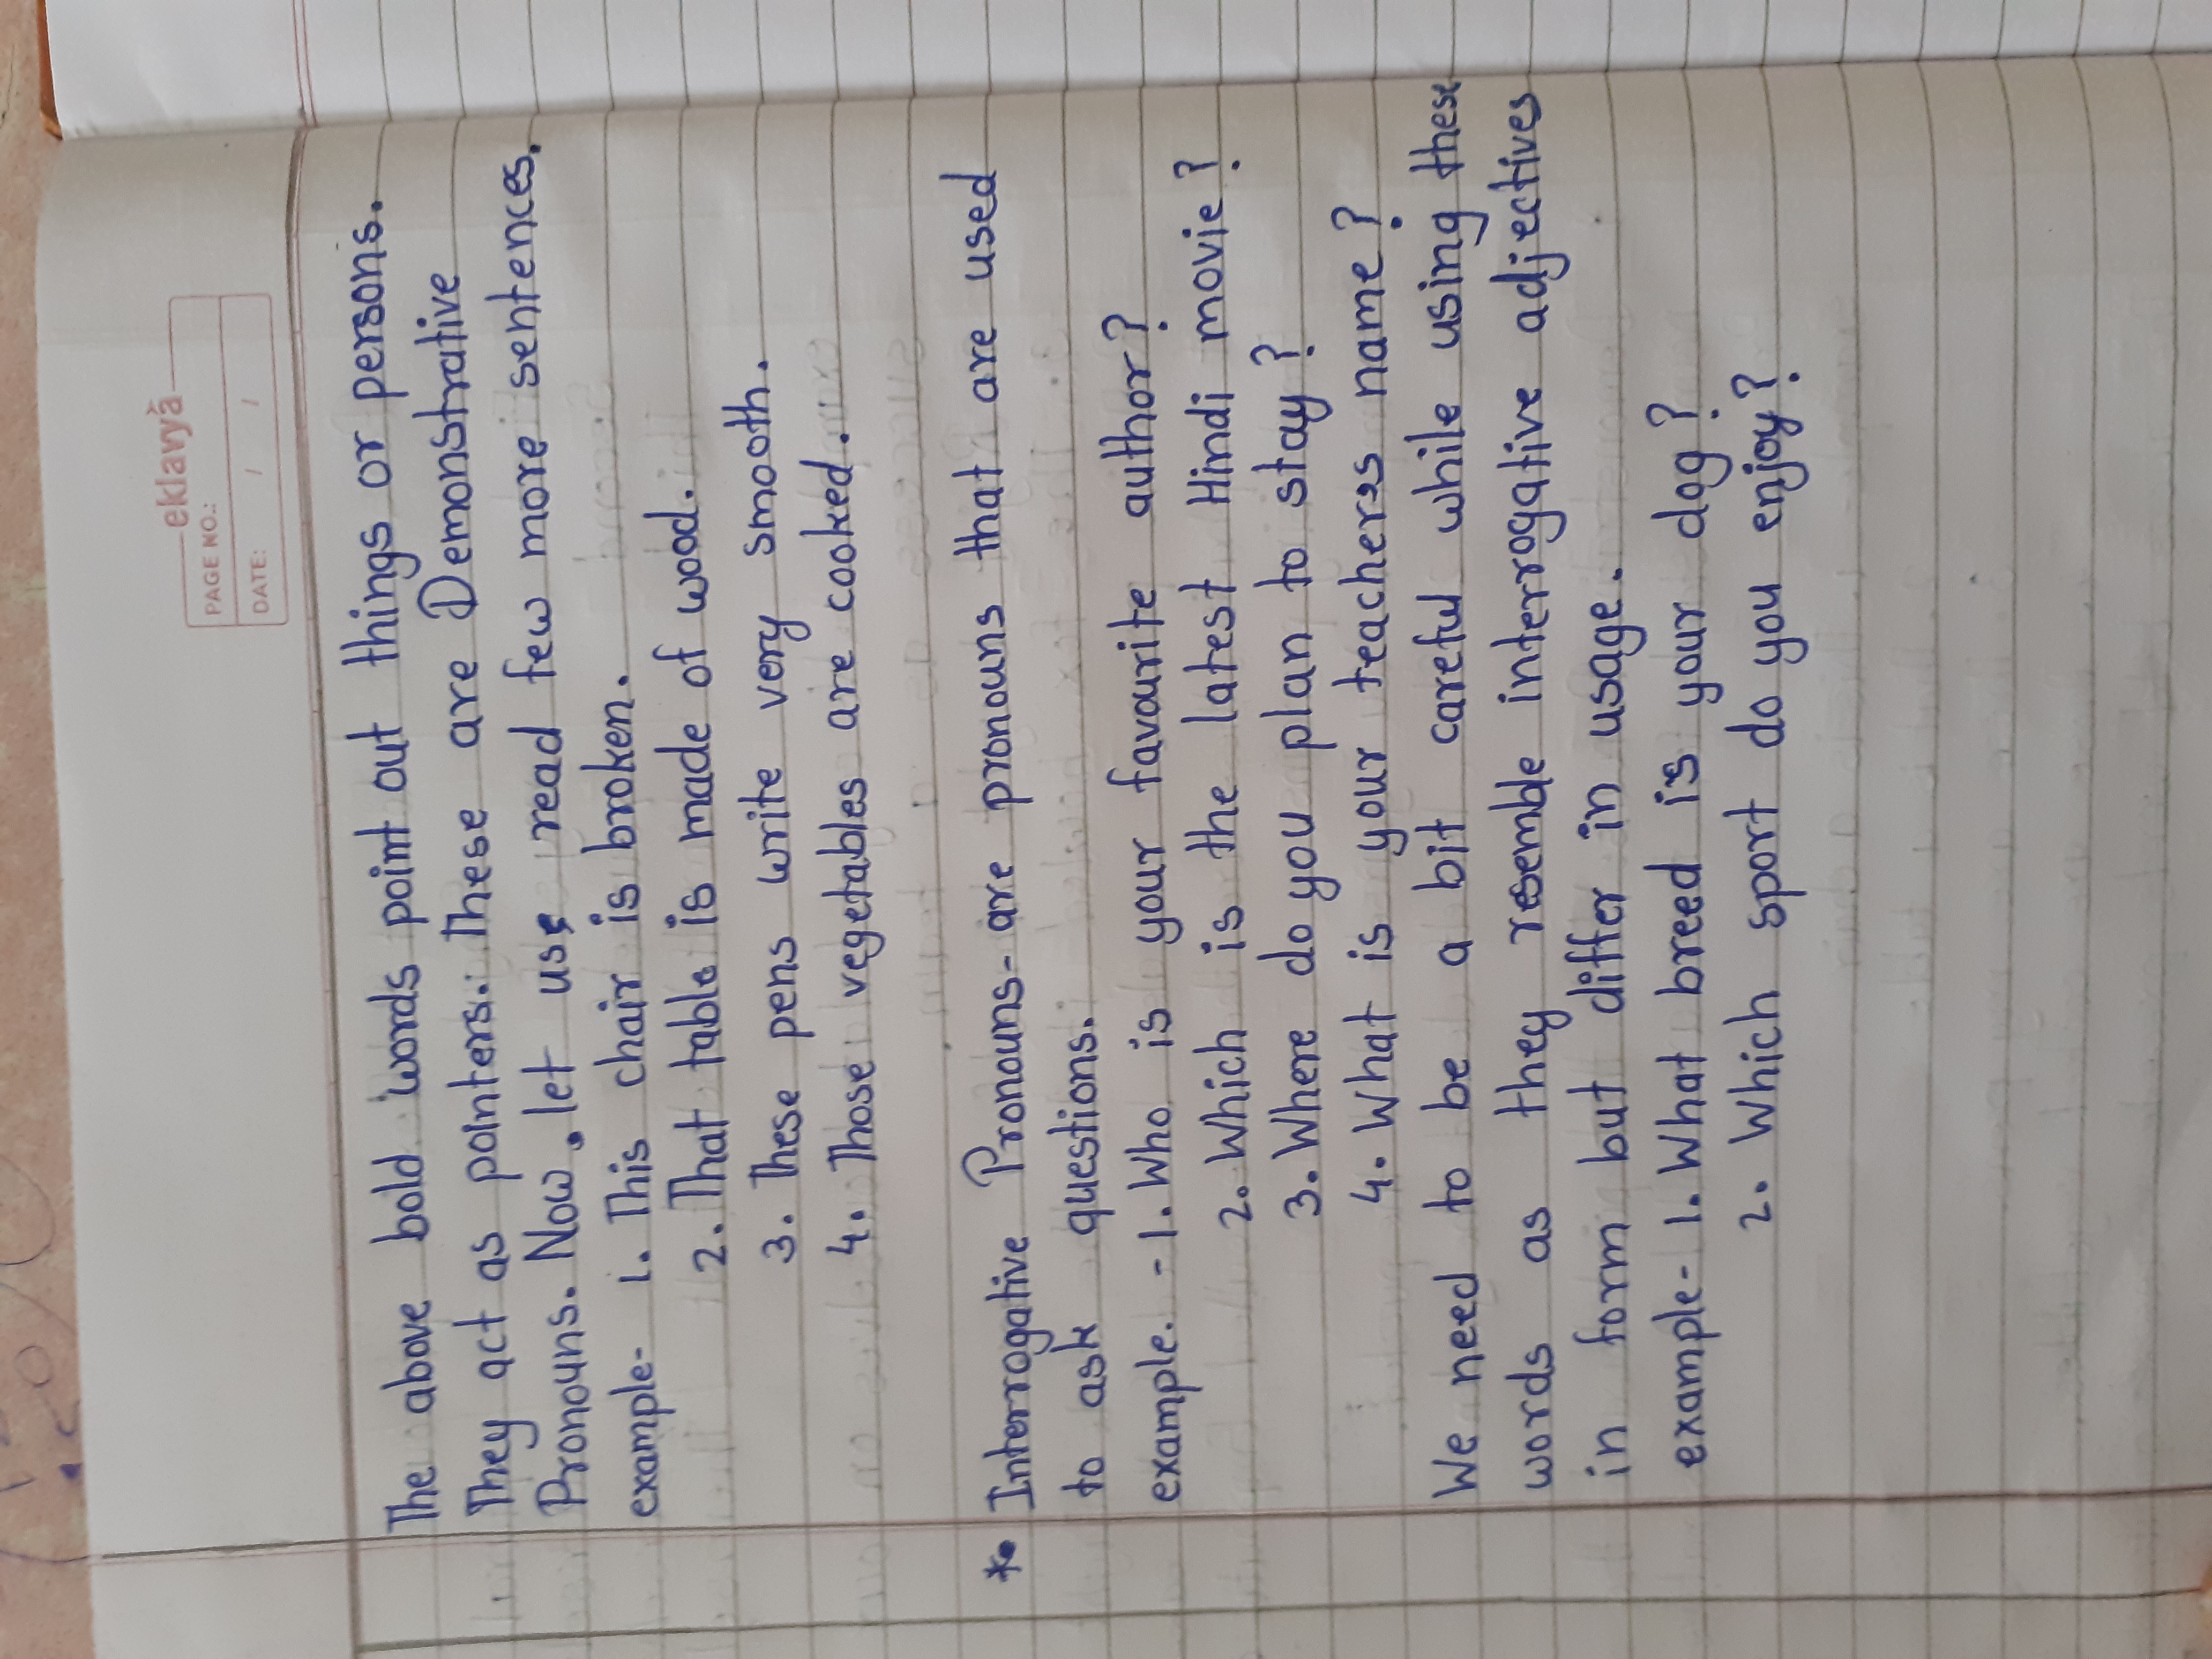 eklavya
PAGE NO.:
DATE: / /
The above bold words point out things or persons.
They act as pointers. These are Demonstrative
Pronouns. Now, let us, read few more sentences.
example- 1. This chair is broken.
2. That table is made of wood.
3. These pens write very smooth.
4. Those vegetables are cooked.
*. Interrogative Pronouns- are pronouns that are used
to ask questions.
example. - 1. Who is your favourite author?
2. Which is the latest Hindi movie?
3. Where do you plan to stay?
4. What is your teachers name?
We need to be a bit careful while using these
words as they resemble interrogative adjectives
in form but differ in usage.
example- 1. What breed is your dog?
2. Which sport do you enjoy?